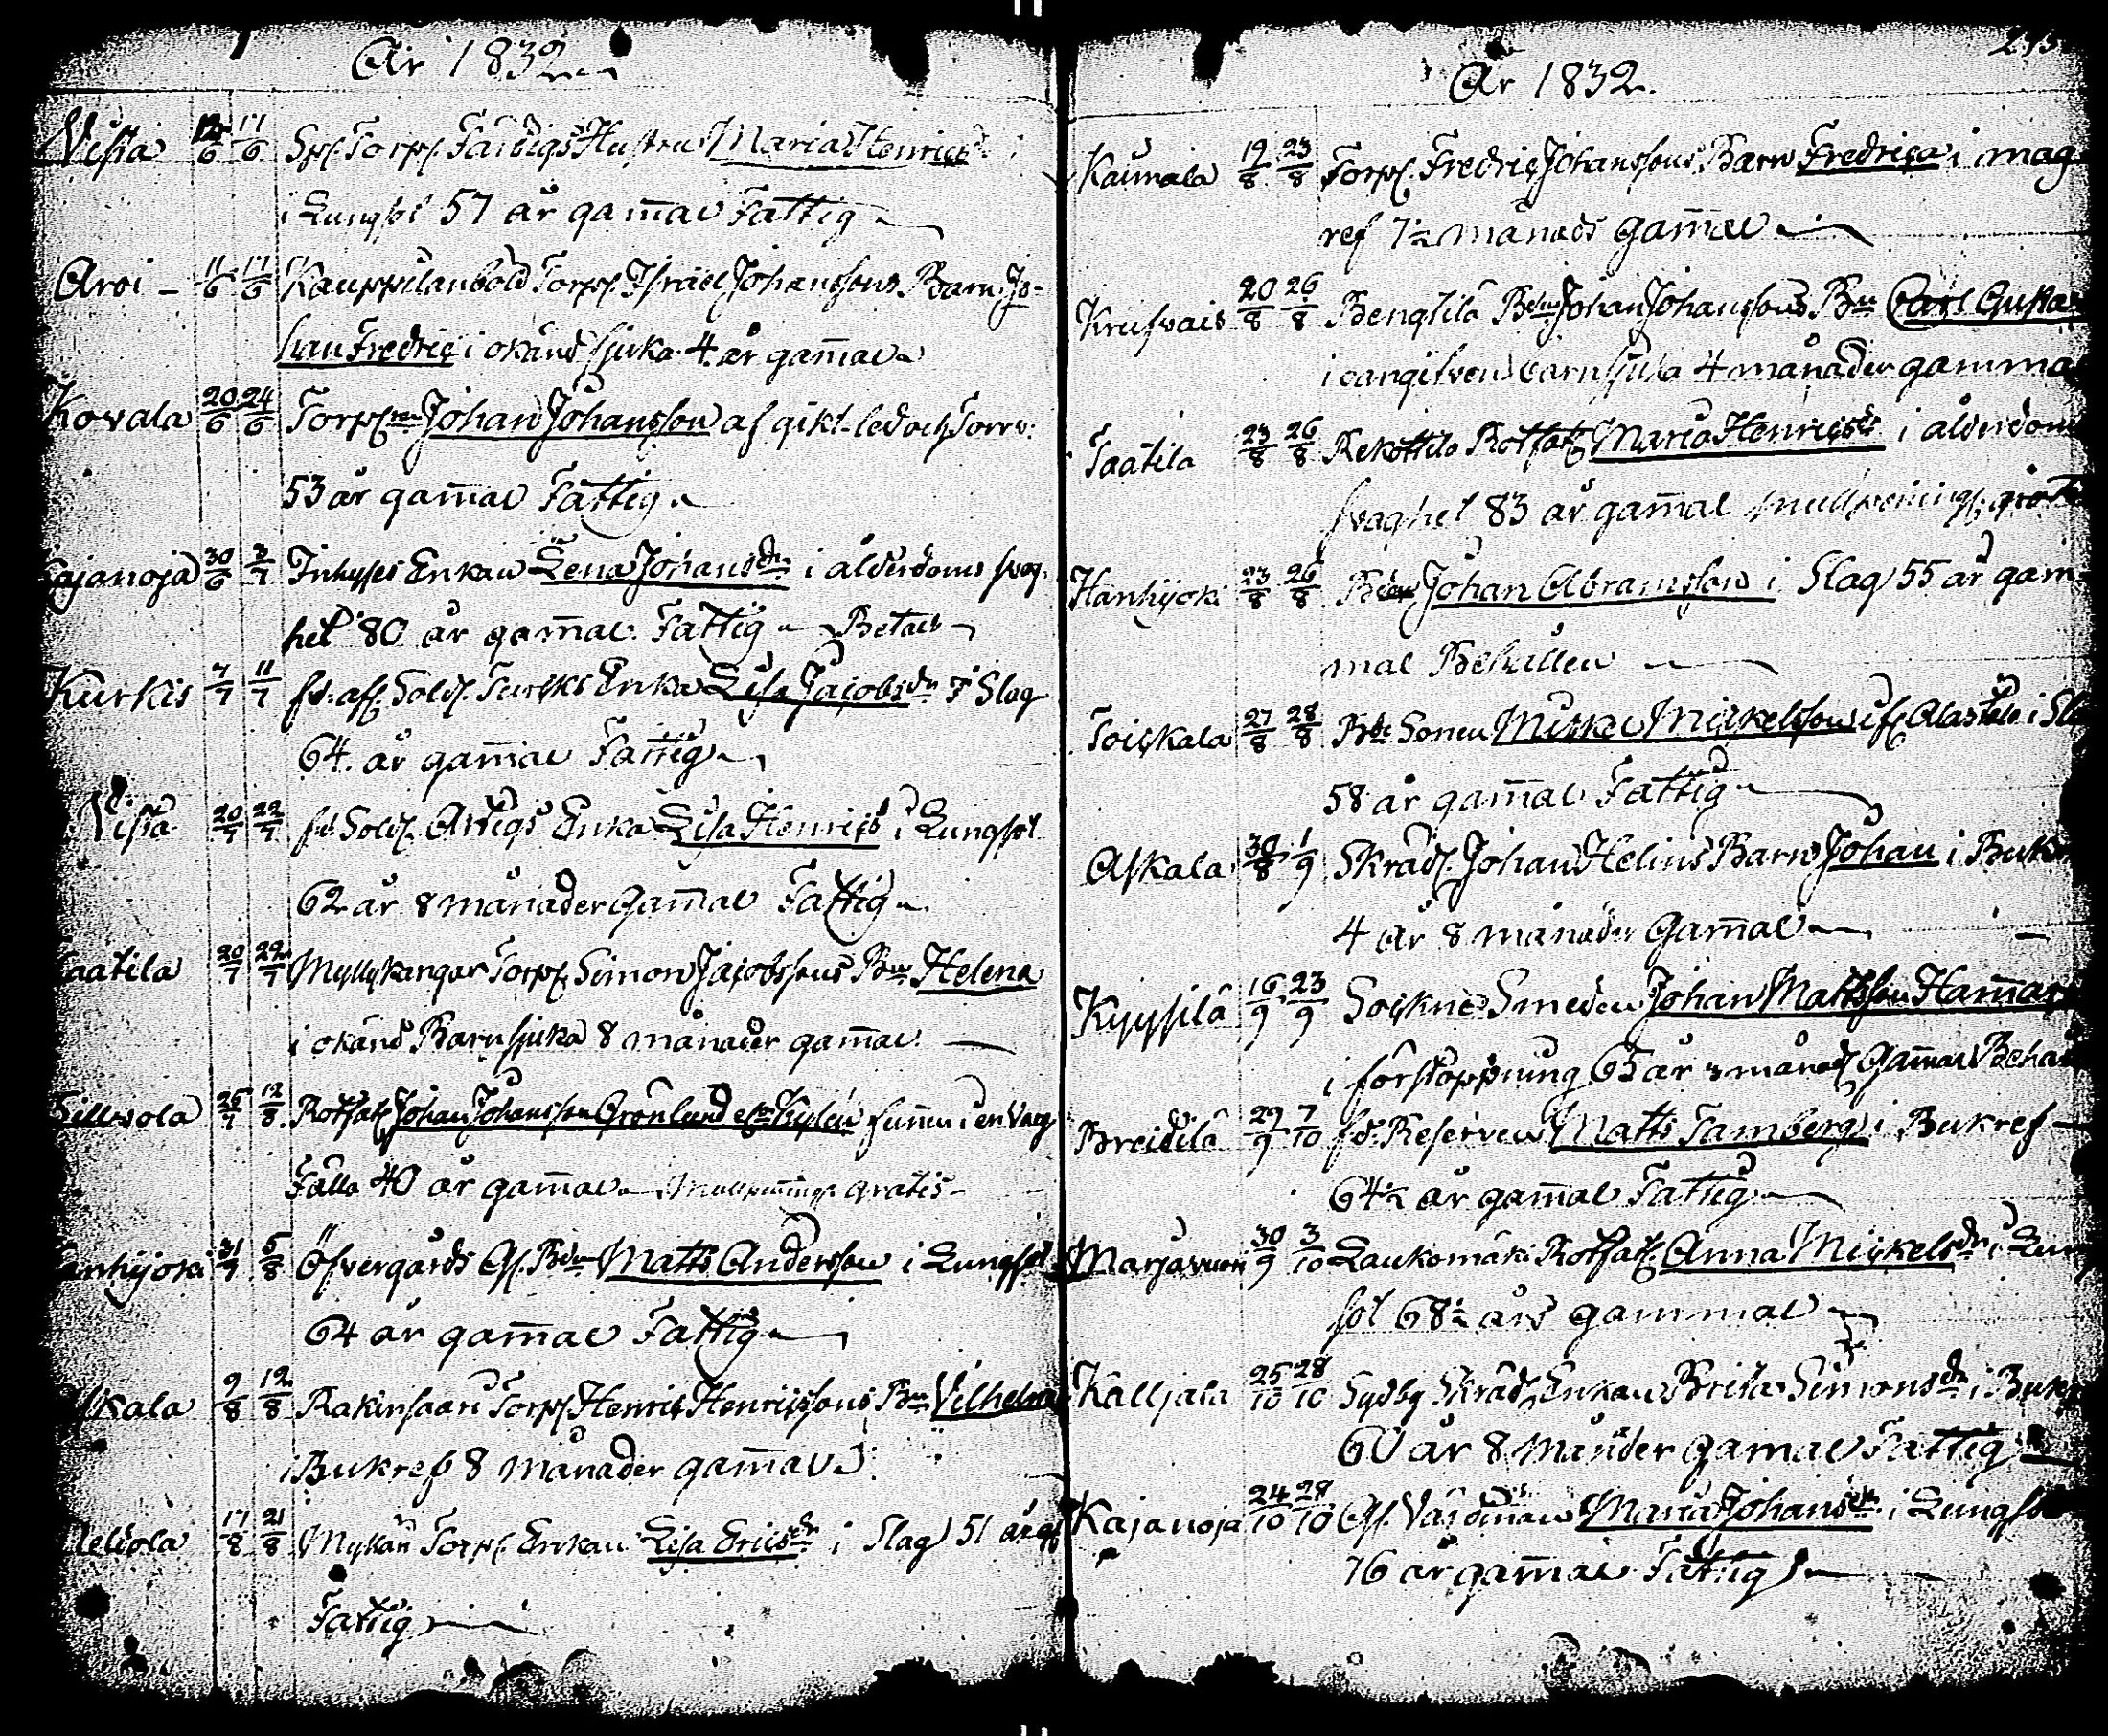 År 1832
Vista 12/6 17/6 Sp. Torp. Färdigs Hustru Maria Henricsdr
i Lungsot 57 år gam̄al Fattig
Aroi – 11/6 17/6 Kauppilanböld Torp. Israel Johanssons Barn Jo-
han Fredric i okänd sjuka 4 år gam̄al
Kovala 20/6 24/6 Torp. Johan Johansson af gikt-led och Torrv:
53 år gam̄al Fattig
Kajanoja 30/6 3/7 Inhyses Enkan Lena Johansdr i ålderdoms svag-
het 80 år gam̄al Fattig Betalt
Kurkis 7/7 11/7 fd. afsk. Sold. Enka Lisa Jacobsdr i Slag
64 år gam̄al Fattig
Vista 20/7 22/7 fd. Sold. Artigs Enka Lisa Henrics i Lungsot
62 år 8 månader gam̄al Fattig
aatila 20/7 22/7 Myllykangar Torp. Simon Jacobssons Bn Helena
i okänd Barnsjuka 8 månader gam̄al
25/7 12/8 Rotfat. Johan Johansson Grönlund funnen i en Varg
Fälla 40 år gam̄al Mullpennings gratis
anhijoki 31/7 5/8 Öfvergårds Bdn Matts Andersson i Lungsot
64 år gam̄al Fattig
skala 9/8 12/8 Rakinsaari Torp. Henric Henricssons Bn Vilhelm
i Bukref 8 månader gam̄al
17/8 21/8 Torp. Enkan Lisa Ericsdr i Slag 51 år g
Fattig
År 1832.
Kaumala 19/8 23/8 Torp. Fredric Johanssons Barn Fredrica i mag
ref 7½ månads gam̄al
20/8 26/8 Bengtilä Johan Johanssons Bn Carl Gusta
i oangifven barnsjuka 4 månader gamma
Taatila 23/8 26/8 Rekottila Rotfat. Maria Henricsdr i ålderdom
svaghet 83 år gam̄al mullpenings. grat
Hanhijoki 23/8 26/8 Johan Abramsson i Slag 55 år gam
mal Behållen
Toickala 27/8 28/8 Bde Sonen Mickel Mickelsson if. Alastalo i Sla
58 år gam̄al Fattig
Askala 30/8 1/9 Skräd. Johan Helins Barn Johan i Buk
4 år 8 månader Gam̄al
Kyysilä 16/9 23/9 Sockne Smeden Johan Mattsson Ham̄ar
i förstoppning 65 år 3 månad Gam̄al Behål
Breidilä 29/9 7/10 fd. Reserven Matts Tamberg i Bukref
64½ år gam̄al Fattig
Marjavuori 30/9 3/10 Laukomäki Rotfat. Anna Mickelsdr i Lun
sot 68½ års gammal
Kalljala 25/10 28/10 Sydby Skräd. Enkan Brita Simonsdr i Buk
60 år 8 månder gamal Fattig
Kajanoja 24/10 28/10 Maria Johansdr i Lungso
76 år gam̄al Fattig